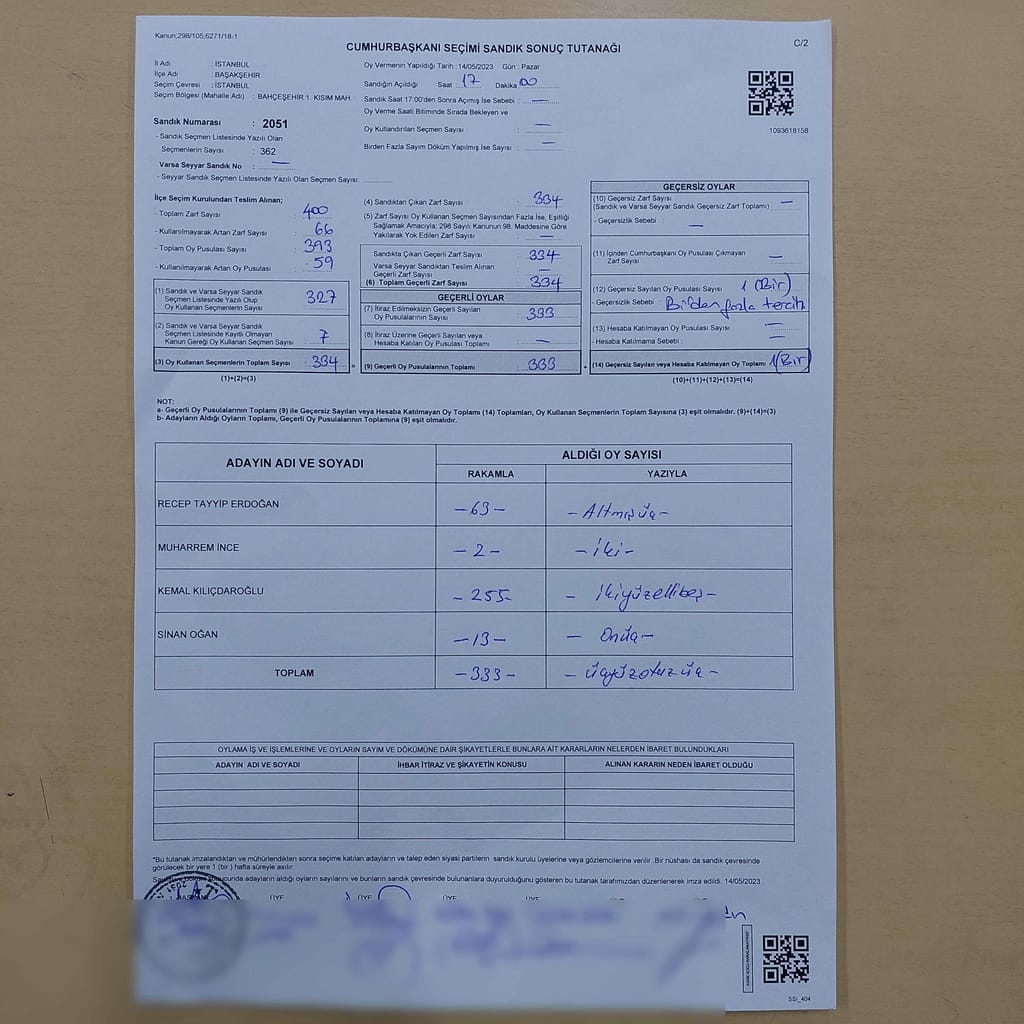 Kanun;298/105,6271/18-1
C/2
CUMHURBAŞKANI SEÇİMİ SANDIK SONUÇ TUTANAĞI
İl Adı : İSTANBUL
İlçe Adı : BAŞAKŞEHİR
Seçim Çevresi : İSTANBUL
Seçim Bölgesi (Mahalle Adı) : BAHÇEŞEHİR 1. KISIM MAH.
Sandık Numarası : 2051
- Sandık Seçmen Listesinde Yazılı Olan
Seçmenlerin Sayısı : 362
Varsa Seyyar Sandık No : —
- Seyyar Sandık Seçmen Listesinde Yazılı Olan Seçmen Sayısı:
Oy Vermenin Yapıldığı Tarih :14/05/2023 Gün : Pazar
Sandığın Açıldığı Saat : 17 Dakika : 00
Sandık Saat 17:00'den Sonra Açılmış İse Sebebi : —
Oy Verme Saati Bitiminde Sırada Bekleyen ve
Oy Kullandırılan Seçmen Sayısı : —
Birden Fazla Sayım Döküm Yapılmış İse Sayısı : —
1093618158
İlçe Seçim Kurulundan Teslim Alınan;
- Toplam Zarf Sayısı : 400
- Kullanılmayarak Artan Zarf Sayısı : 66
- Toplam Oy Pusulası Sayısı : 393
- Kullanılmayarak Artan Oy Pusulası : 59
(1) Sandık ve Varsa Seyyar Sandık
Seçmen Listesinde Yazılı Olup
Oy Kullanan Seçmenlerin Sayısı : 327
(2) Sandık ve Varsa Seyyar Sandık
Seçmen Listesinde Kayıtlı Olmayan
Kanun Gereği Oy Kullanan Seçmen Sayısı : 7
(3) Oy Kullanan Seçmenlerin Toplam Sayısı : 334
(1)+(2)=(3)
(4) Sandıktan Çıkan Zarf Sayısı : 334
(5) Zarf Sayısı Oy Kullanan Seçmen Sayısından Fazla İse, Eşitliği
Sağlamak Amacıyla; 298 Sayılı Kanunun 98. Maddesine Göre
Yakılarak Yok Edilen Zarf Sayısı : —
Sandıkta Çıkan Geçerli Zarf Sayısı : 334
Varsa Seyyar Sandıktan Teslim Alınan
Geçerli Zarf Sayısı : —
(6) Toplam Geçerli Zarf Sayısı : 334
GEÇERLİ OYLAR
(7) İtiraz Edilmeksizin Geçerli Sayılan
Oy Pusulalarının Sayısı : 333
(8) İtiraz Üzerine Geçerli Sayılan veya
Hesaba Katılan Oy Pusulası Toplamı : —
= (9) Geçerli Oy Pusulalarının Toplamı : 333
GEÇERSİZ OYLAR
(10) Geçersiz Zarf Sayısı
(Sandık ve Varsa Seyyar Sandık Geçersiz Zarf Toplamı) : —
- Geçersizlik Sebebi : —
(11) İçinden Cumhurbaşkanı Oy Pusulası Çıkmayan
Zarf Sayısı : —
(12) Geçersiz Sayılan Oy Pusulası Sayısı : 1 (Bir)
- Geçersizlik Sebebi : Birden fazla tercih
(13) Hesaba Katılmayan Oy Pusulası Sayısı : —
- Hesaba Katılmama Sebebi : —
+ (14) Geçersiz Sayılan veya Hesaba Katılmayan Oy Toplamı : 1(Bir)
(10)+(11)+(12)+(13)=(14)
NOT:
a- Geçerli Oy Pusulalarının Toplamı (9) ile Geçersiz Sayılan veya Hesaba Katılmayan Oy Toplamı (14) Toplamları, Oy Kullanan Seçmenlerin Toplam Sayısına (3) eşit olmalıdır. (9)+(14)=(3)
b- Adayların Aldığı Oyların Toplamı, Geçerli Oy Pusulalarının Toplamına (9) eşit olmalıdır.
ADAYIN ADI VE SOYADI
ALDIĞI OY SAYISI
RAKAMLA YAZIYLA
RECEP TAYYİP ERDOĞAN -63- -Altmışüç-
MUHARREM İNCE -2- -iki-
KEMAL KILIÇDAROĞLU -255- -ikiyüzellibeş-
SİNAN OĞAN -13- -Onüç-
TOPLAM -333- -üçyüzotuzüç-
OYLAMA İŞ VE İŞLEMLERİNE VE OYLARIN SAYIM VE DÖKÜMÜNE DAİR ŞİKAYETLERLE BUNLARA AİT KARARLARIN NELERDEN İBARET BULUNDUKLARI
ADAYIN ADI VE SOYADI İHBAR İTİRAZ VE ŞİKAYETİN KONUSU ALINAN KARARIN NEDEN İBARET OLDUĞU
*Bu tutanak imzalandıktan ve mühürlendikten sonra seçime katılan adayların ve talep eden siyasi partilerin sandık kurulu üyelerine veya gözlemcilerine verilir. Bir nüshası da sandık çevresinde
görülecek bir yere 1 (bir) hafta süreyle asılır.
adayların aldığı oyların sayılarını ve bunların sandık çevresinde bulunanlara duyurulduğunu gösteren bu tutanak tarafımızdan düzenlenerek imza edildi. 14/05/2023
ÜYE ÜYE ÜYE ÜYE
SSI_404